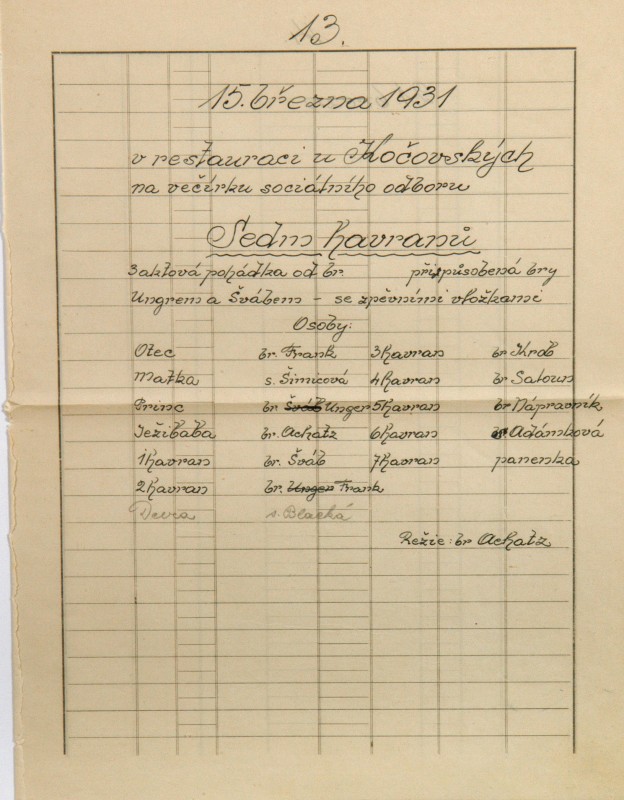 13.
15. března 1931
v restauraci u Kočovských
na večírku sociálního odboru
Sedm havranů
3aktová pohádka od br. přispůsobená bry
Ungrem a Švábem - se zpěvními vložkami
Osoby:
Otec br. Frank 3 havran br Krob
Matka s. Šimicová 4 havran br Satoun
Princ br. Šváb Unger 5 havran br Nápravník
Ježibaba br. Achatz 6 havran Adámková
1 havran br. Šváb 7 havran panenka
2 havran br. Unger Frank
Dcera s. Blacká
Režie: br Achatz